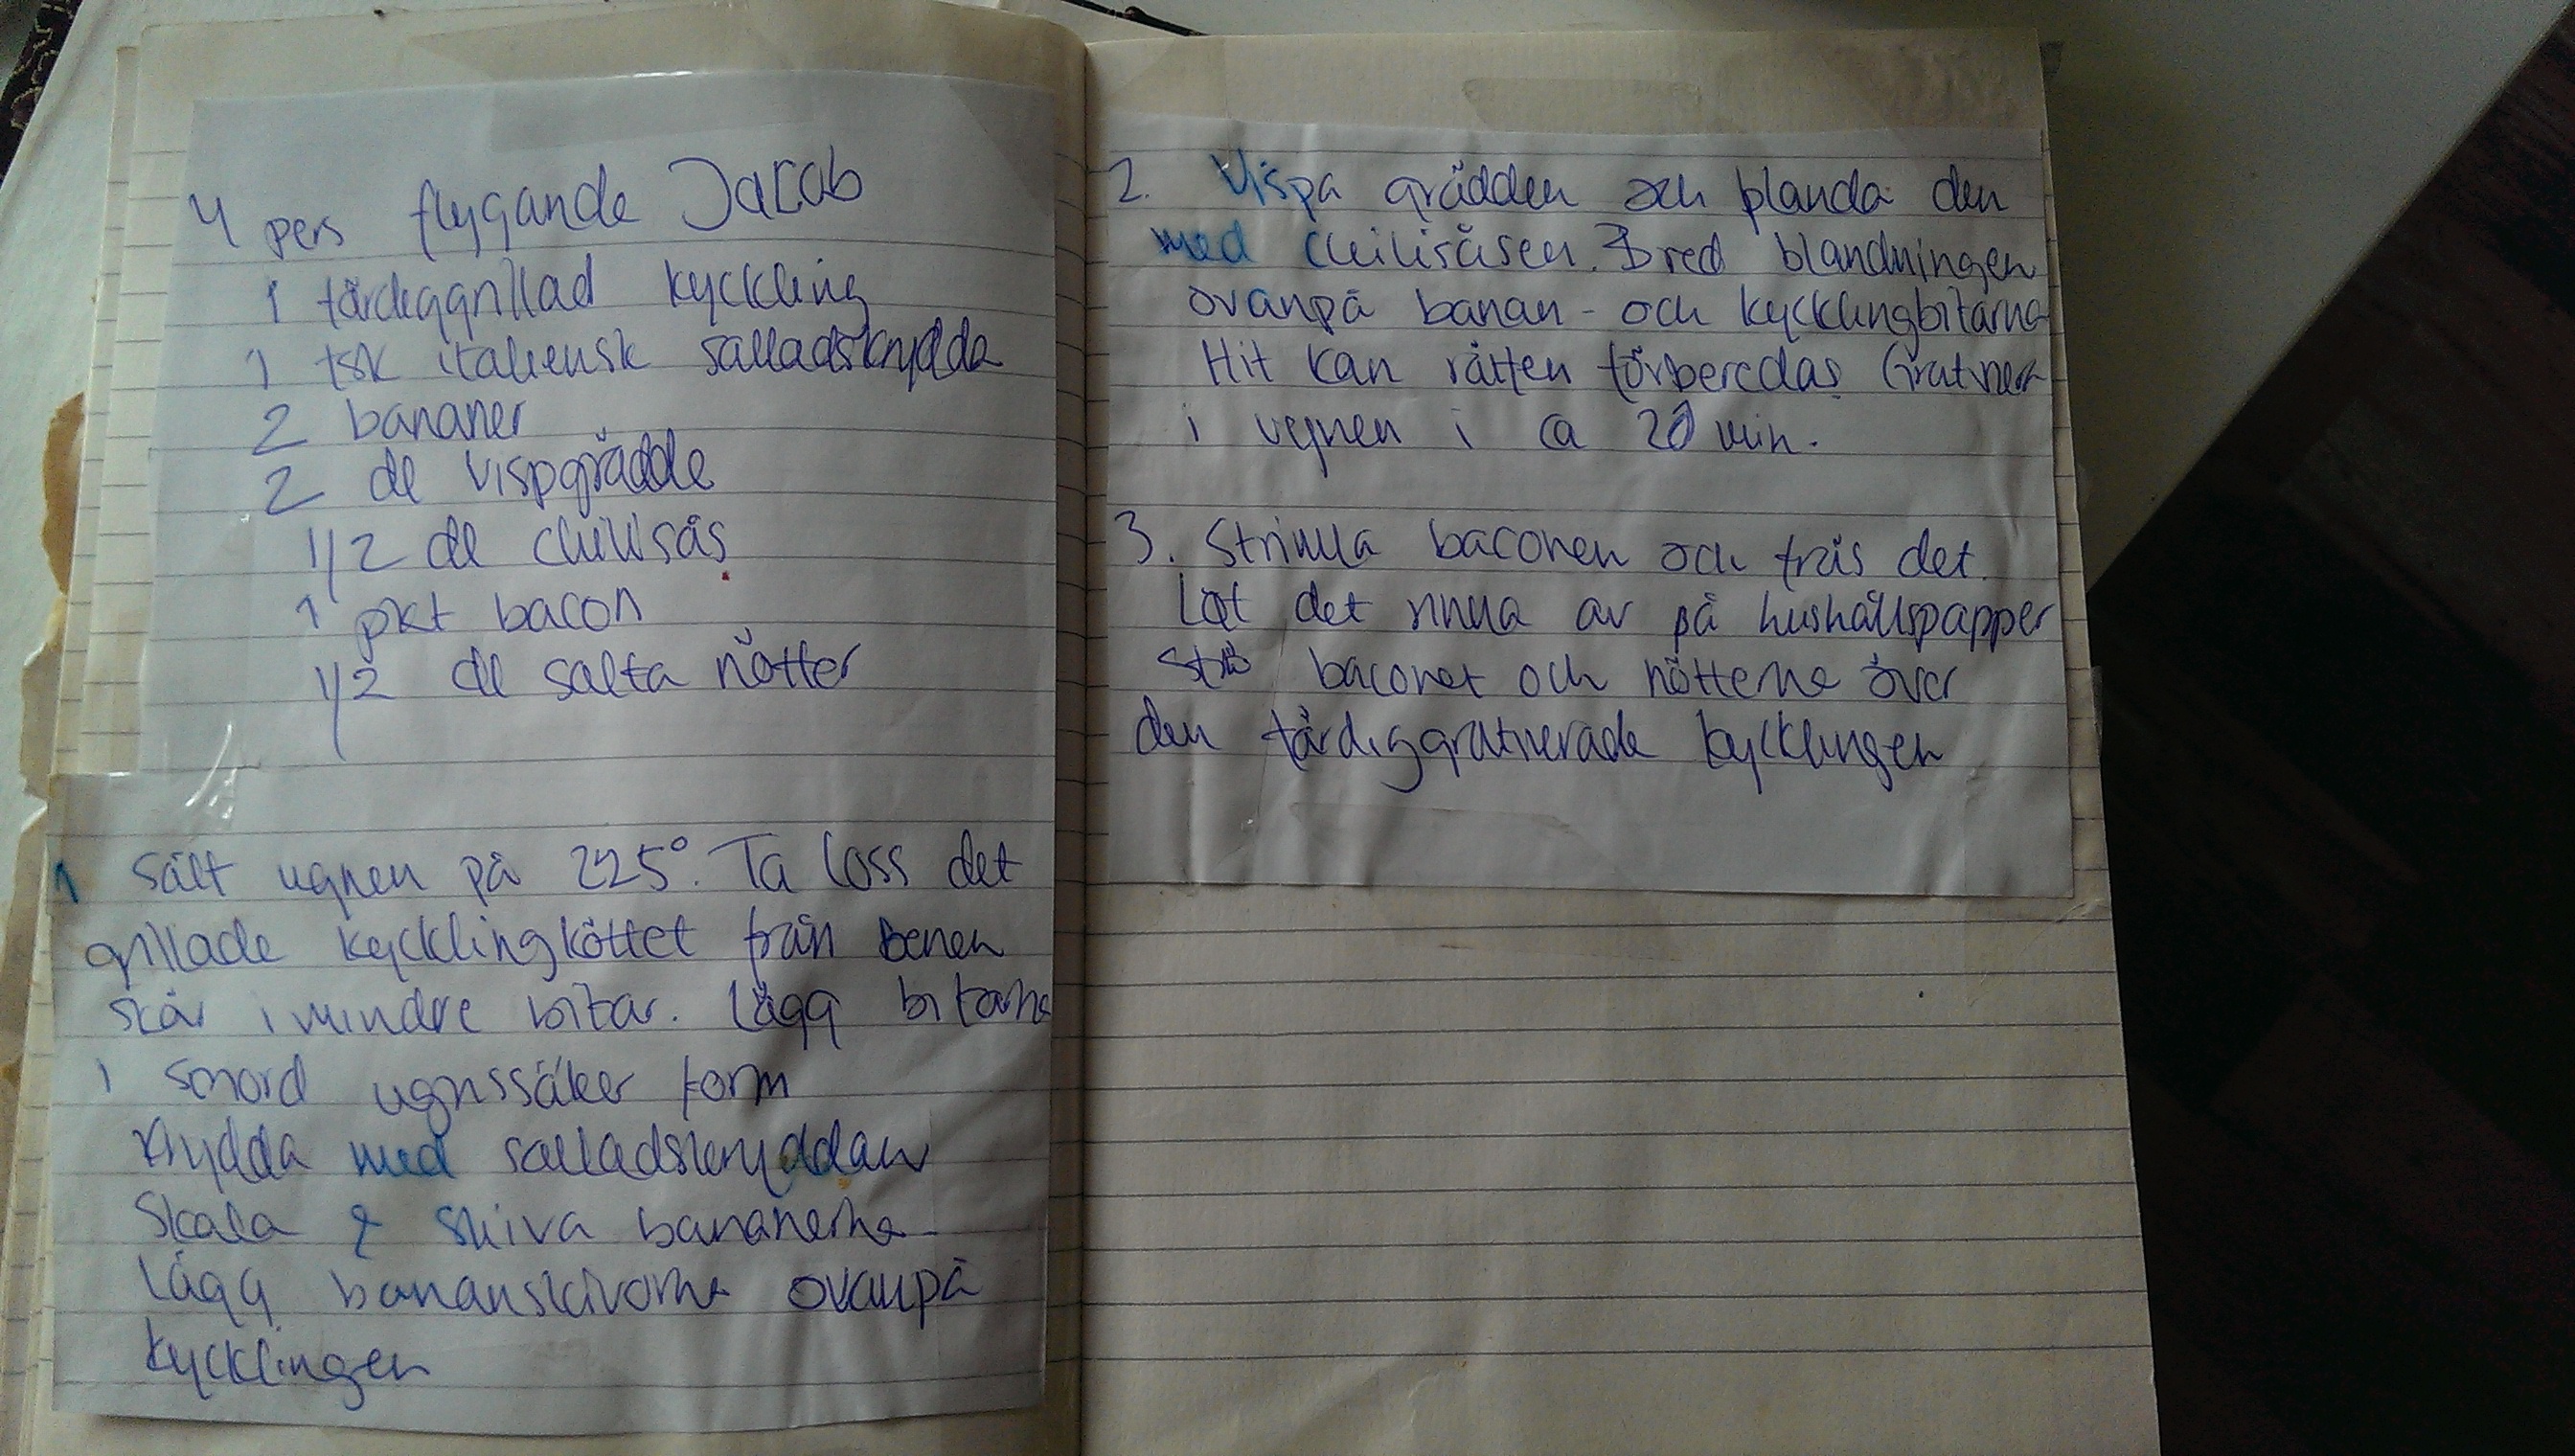 4 pers flygande Jacob
1 färdiggrillad kyckling
1 tsk italiensk salladskrydda
2 bananer
2 dl vispgrädde
1/2 dl chilisås
1 pkt bacon
1/2 dl salta nötter
1 Sätt ugnen på 225°. Ta loss det
grillade kycklingköttet från benen
skär i mindre bitar. Lägg bitarna
i smord ugnssäker form
Krydda med salladskryddan
Skala & skiva bananerna
Lägg bananskivorna ovanpå
kycklingen
2. Vispa grädden och blanda den
med chilisåsen. Bred blandningen
ovanpå banan- och kycklingbitarna
Hit kan rätten förberedas Gratinera
i ugnen i ca 20 min.
3. Strimla baconen och fräs det.
Låt det rinna av på hushållspapper
Strö baconet och nötterna över
den färdiggratinerade kycklingen